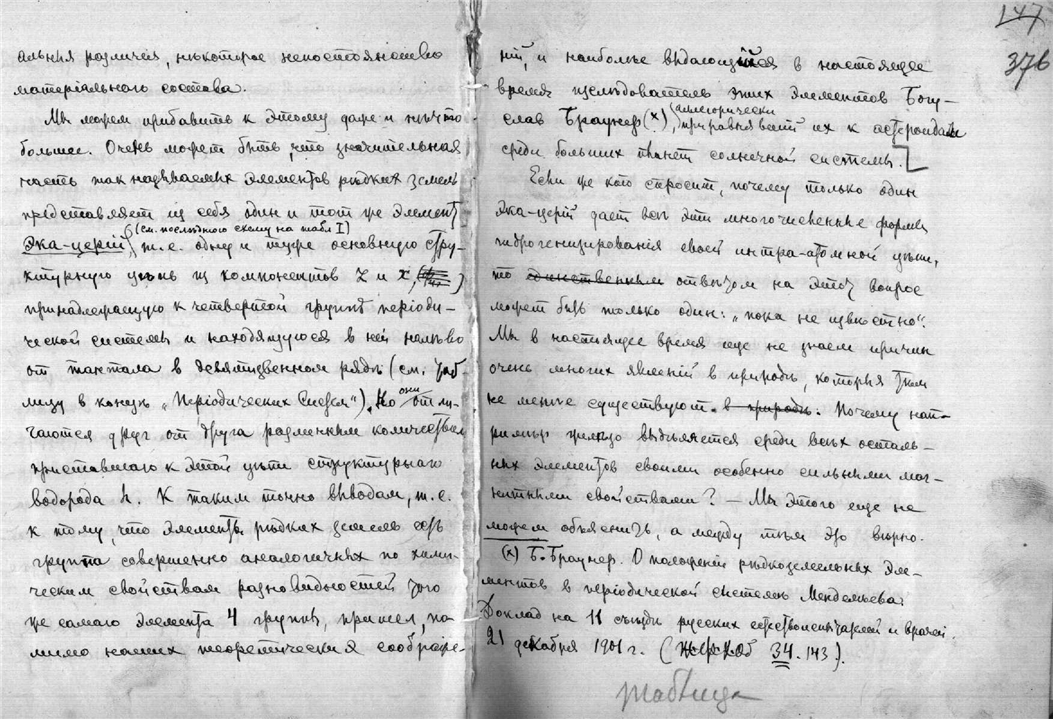 альныя различія, нѣкоторое непостоянство
матеріальнаго состава.
Мы можем прибавить к этому даже и нѣчто
большее. Очень может быть, что значительная
часть так называемых элементов рѣдких земель
представляет из себя один и тот же элемент
Эка-церій (см. послѣднюю схему на табл I) т.е. одну и ту же основную стру-
ктурную цѣпь из компонентов Z и x,
принадлежащую к четвертой группѣ періоди-
ческой системы и находящуюся в ней налѣво
от тантала в девятизвенном ряду (см. Таб-
лицу в концѣ „Періодических Систем"). Но они отли-
чаются друг от друга различным количеством
приставшаго к этой цѣпи структурнаго
водорода h. К таким точно выводам, т.е.
к тому, что элементы рѣдких земель есть
группа совершенно аналогичных по хими-
ческим свойствам разновидностей того
же самаго элемента 4 группы, пришел, по-
мимо наших теоретических соображе-
147
376
ній, и наиболѣе выдающійся в настоящее
время изслѣдователь этих элементов Богу-
слав Браунер (x), аллегорически приравнявшій их к астероидам
среди больших планет солнечной системы.
Если же кто спросит, почему только один
Эка-церій дает всѣ эти многочисленные формы
гидрогенизированія своей интра-атомной цѣпи,
то единственным отвѣтом на этот вопрос
может быть только один: „пока не извѣстно".
Мы в настоящее время еще не знаем причин
очень многих явленій в природѣ, которыя тѣм
не менѣе существуют в природѣ. Почему нап-
римѣр желѣзо выдѣляется среди всѣх осталь-
ных элементов своими особенно сильными маг-
нитными свойствами? — Мы этого еще не
можем объяснить, а между тѣм это вѣрно.
(x) Б. Браунер. О положеніи рѣдкоземельных эле-
ментов в періодической системѣ Менделѣева.
Доклад на 11 съѣздѣ русских естествоиспытателей и врачей.
21 декабря 1901 г. (ЖРФХОб 34. 143).
таблица